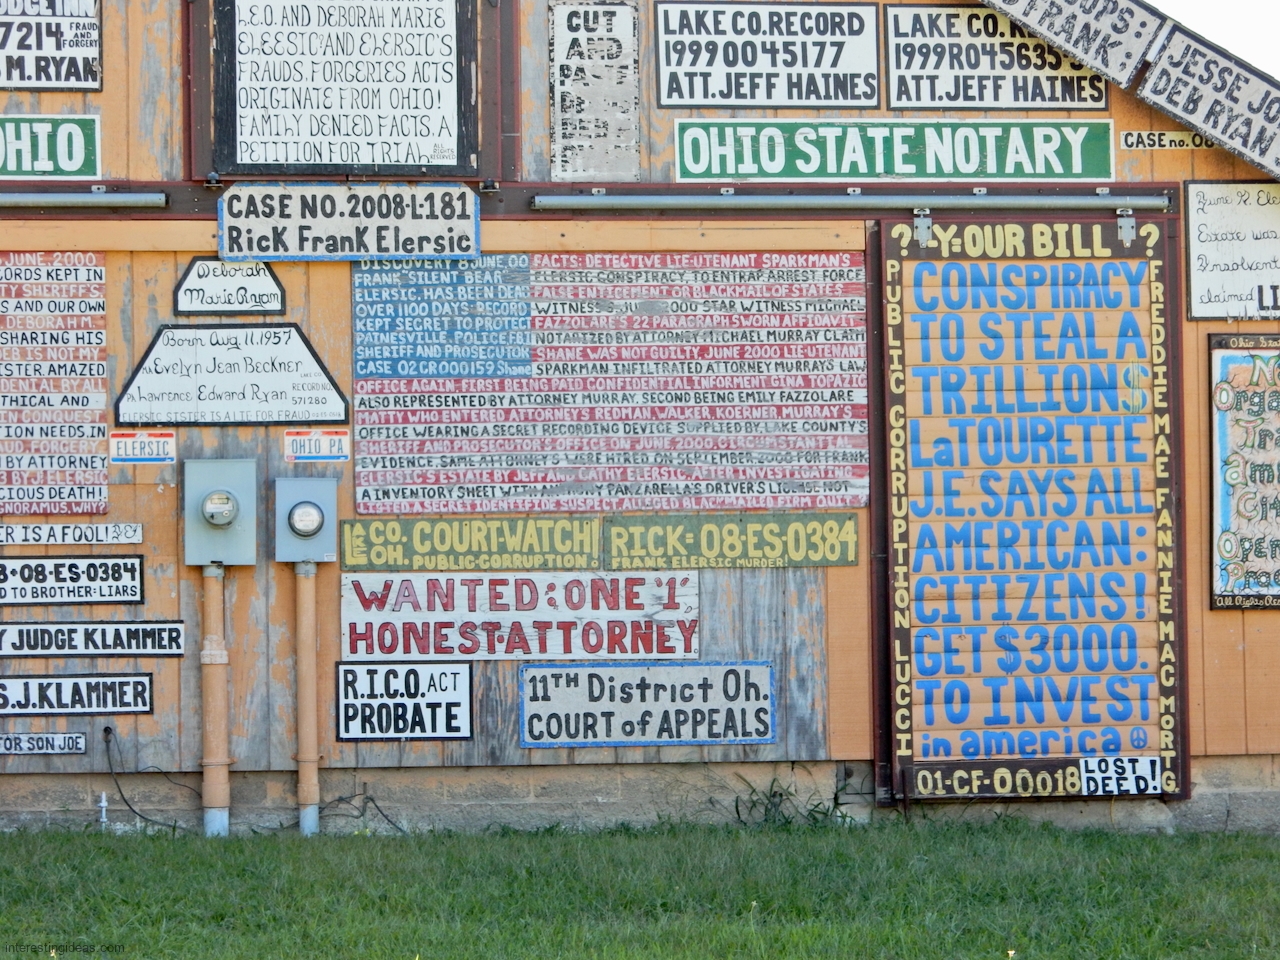 7214 FRAUD AND FORGERY
M. RYAN
OHIO
L.E.O. AND DEBORAH MARIE
ELERSIC'S
FRAUDS. FORGERIES ACTS
ORIGINATE FROM OHIO!
FAMILY DENIED FACTS. A
PETITION FOR TRIAL ALL RIGHTS RESERVED
CUT
AND
LAKE CO. RECORD
1999 0045177
ATT. JEFF HAINES
LAKE CO.
1999R045635
ATT. JEFF HAINES
FRANK:
JESSE JO
DEB RYAN
OHIO STATE NOTARY
CASE no. 08
CASE NO. 2008-L-181
Rick Frank Elersic
JUNE, 2000
CORDS KEPT IN
TY SHERIFF'S
S AND OUR OWN
DEBORAH M.
SHARING HIS
DEB IS NOT MY
SISTER. AMAZED
DENIAL BY ALL
THICAL AND
IN CONQUEST
ION NEEDS, IN
OD, FORGERIES
BY ATTORNEY
BY J. ELERSIC
CIOUS DEATH!
IGNORAMUS. WHY?
Deborah
Marie Ryan
Born Aug 11, 1957
MA Evelyn Jean Beckner
PA Lawrence Edward Ryan LAKE CO RECORD NO. 571280
ELERSIC SISTER IS A LIE FOR FRAUD
ELERSIC
OHIO PA
DISCOVERY 8 JUNE, 00
FRANK "SILENT BEAR"
ELERSIC, HAS BEEN DEAD
OVER 1100 DAYS. RECORD
KEPT SECRET TO PROTECT
PAINESVILLE, POLICE, FBI
SHERIFF AND PROSECUTOR
CASE 02 CR 000159 Shane
FACTS: DETECTIVE LIE-UTENANT SPARKMAN'S
ELERSIC CONSPIRACY TO ENTRAP, ARREST FORCE
FALSE ENTICEMENT OR BLACKMAIL OF STATES
WITNESS S, JUNE 2000 STAR WITNESS MICHAEL
FAZZOLARE'S 22 PARAGRAPH SWORN AFFIDAVIT
NOTARIZED BY ATTORNEY MICHAEL MURRAY CLAIM
SHANE WAS NOT GUILTY, JUNE 2000 LIE-UTENANT
SPARKMAN INFILTRATED ATTORNEY MURRAY'S LAW
OFFICE AGAIN. FIRST BEING PAID CONFIDENTIAL INFORMENT GINA TOPAZIO
ALSO REPRESENTED BY ATTORNEY MURRAY, SECOND BEING EMILY FAZZOLARE
MATTY WHO ENTERED ATTORNEY'S REDMAN, WALKER, KOERNER, MURRAY'S
OFFICE WEARING A SECRET RECORDING DEVICE SUPPLIED BY, LAKE COUNTY'S
SHERIFF AND PROSECUTOR'S OFFICE ON JUNE, 2000. CIRCUMSTANTIAL
EVIDENCE. SAME ATTORNEY'S WERE HIRED ON SEPTEMBER, 2000 FOR FRANK
ELERSIC'S ESTATE BY JEFF AND CATHY ELERSIC, AFTER INVESTIGATING
A INVENTORY SHEET WITH ANTHONY PANZARELLA'S DRIVER'S LICENSE. NOT
LISTED A SECRET IDENTIFIDE SUSPECT ALLEGED BLACKMAILED FBI
ER IS A FOOL!
B+08-ES-0384
D TO BROTHER: LIARS
Y JUDGE KLAMMER
S.J. KLAMMER
FOR SON JOE
LE CO. COURT-WATCH!
OH. PUBLIC-CORRUPTION.
RICK=08-ES-0384
FRANK ELERSIC MURDER!
WANTED: ONE '1',
HONEST-ATTORNEY.
R.I.C.O. ACT
PROBATE
11TH District Oh.
COURT of APPEALS
?-Y=OUR BILL?
PUBLIC CORRUPTION LUCCI
CONSPIRACY
TO STEAL A
TRILLION$
LaTOURETTE
J.E. SAYS ALL
AMERICAN:
CITIZENS!
GET $3000.
TO INVEST
in america
FREDDIE MAE FANNIE MAC MORTG
01-CF-000018 LOST DEED!
June
Estate was
Insolvent
claimed
Ohio Sta
Orga
Open
All Rights Res
interestingideas.com